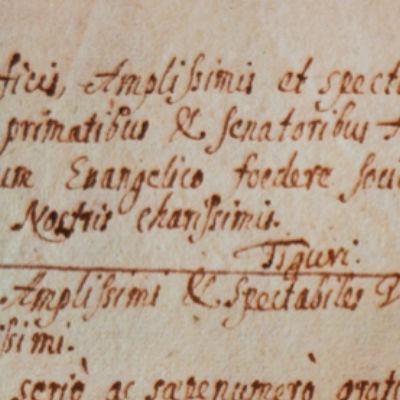 ficis, Amplissimis et specta
primatibus & senatoribus
um Euangelico foedere soci
Nostris charissimis.
Tiguri.
Amplissimi & Spectabiles V
issimi.
seriò ac saepenumerò gratu